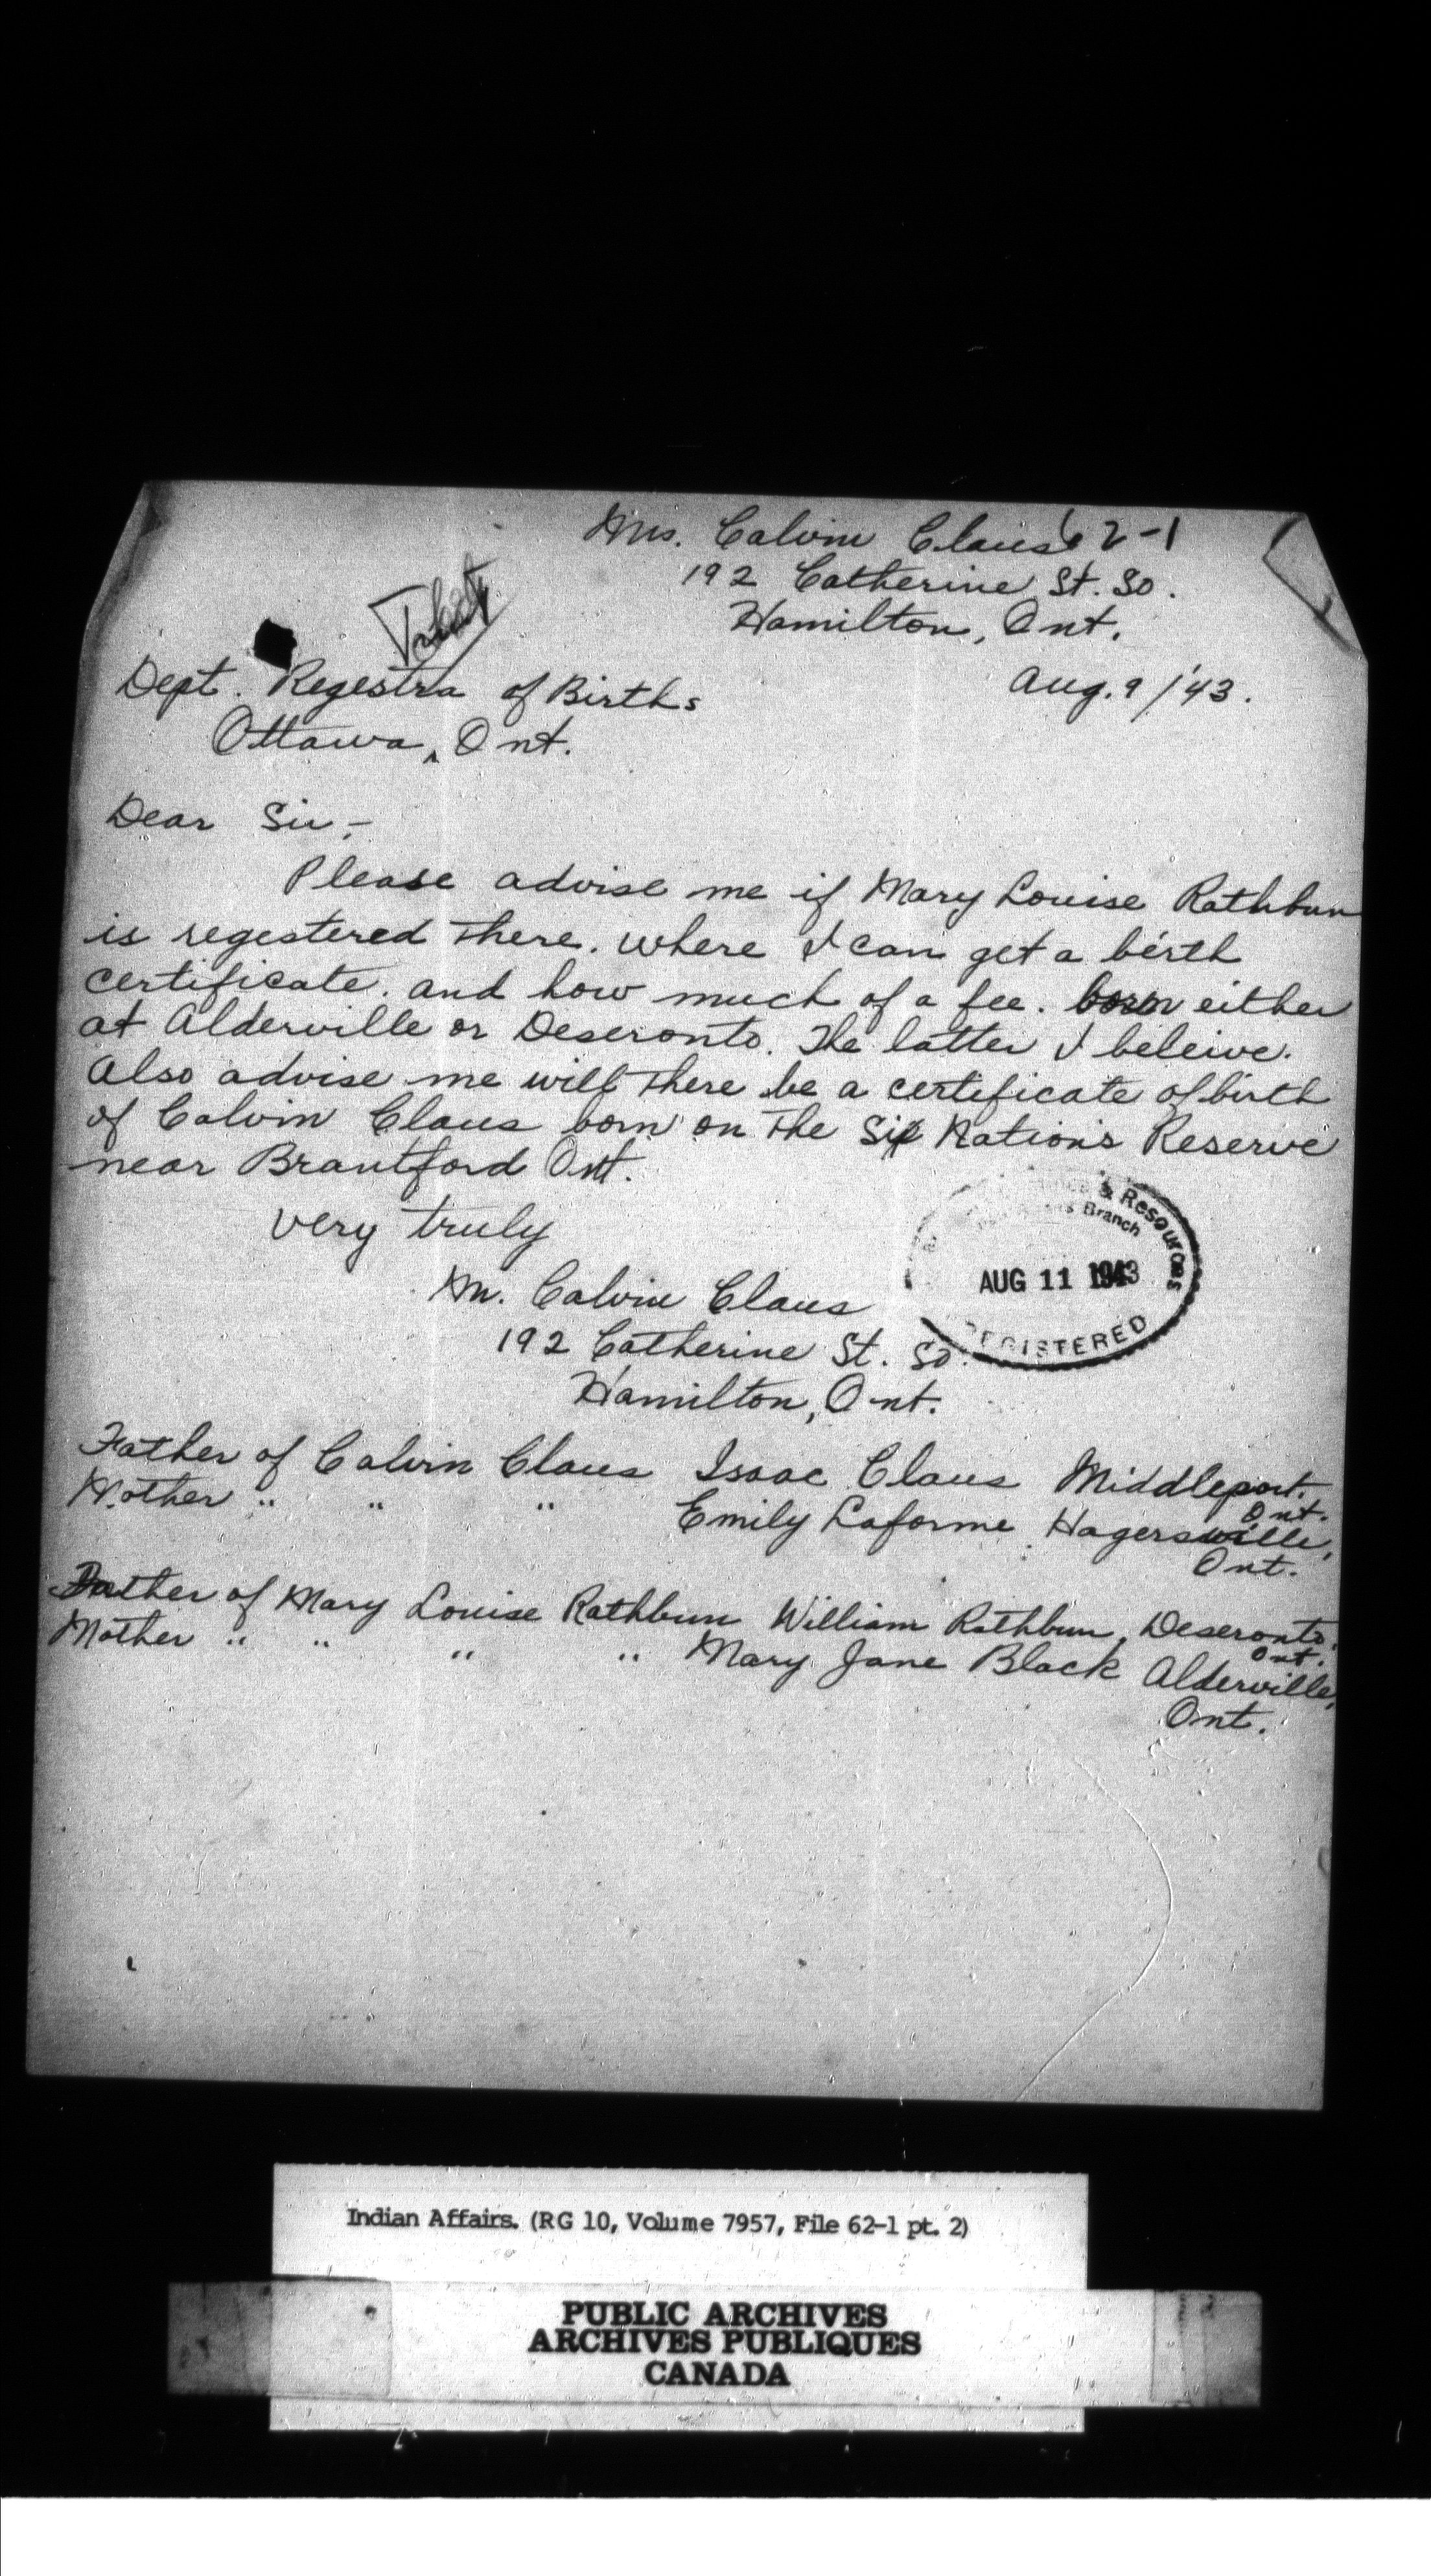 Mrs. Calvin Claus 62-1
192 Catherine St. So.
Hamilton, Ont.
Aug. 9/'43.
Dept. Regestra of Births
Ottawa, Ont.
Dear Sir,-
Please advise me if Mary Louise Rathbun
is regestered there. where I can get a birth
certificate. and how much of a fee. born either
at Alderville or Deseronto. The latter I beleive.
Also advise me will there be a certificate of birth
of Calvin Claus born on the Six Nation's Reserve
near Brantford Ont.
very truly
& Resources
Branch
AUG 11 1943
REGISTERED
M. Calvin Claus
192 Catherine St. So.
Hamilton, Ont.
Father of Calvin Claus Isaac Claus Middleport.
Ont.
Mother " " " Emily Laforme Hagersville,
Ont.
Father of Mary Louise Rathbun William Rathbun, Deseronto,
Ont.
Mother " " " " Mary Jane Black Alderville,
Ont.
Indian Affairs. (RG 10, Volume 7957, File 62-1 pt. 2)
PUBLIC ARCHIVES
ARCHIVES PUBLIQUES
CANADA